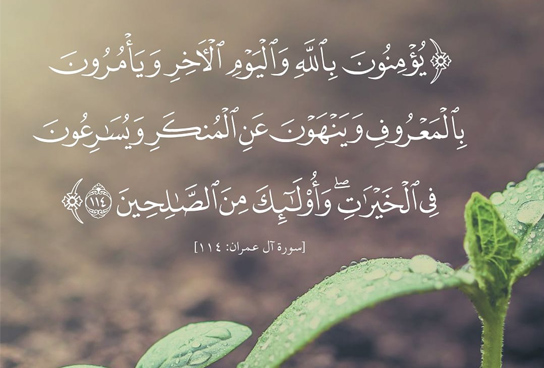 ﴿يُؤْمِنُونَ بِٱللَّهِ وَٱلْيَوْمِ ٱلْأٓخِرِ وَيَأْمُرُونَ
بِٱلْمَعْرُوفِ وَيَنْهَوْنَ عَنِ ٱلْمُنكَرِ وَيُسَٰرِعُونَ
فِى ٱلْخَيْرَٰتِۖ وَأُو۟لَٰٓئِكَ مِنَ ٱلصَّٰلِحِينَ ١١٤﴾
[سورة آل عمران: ١١٤]